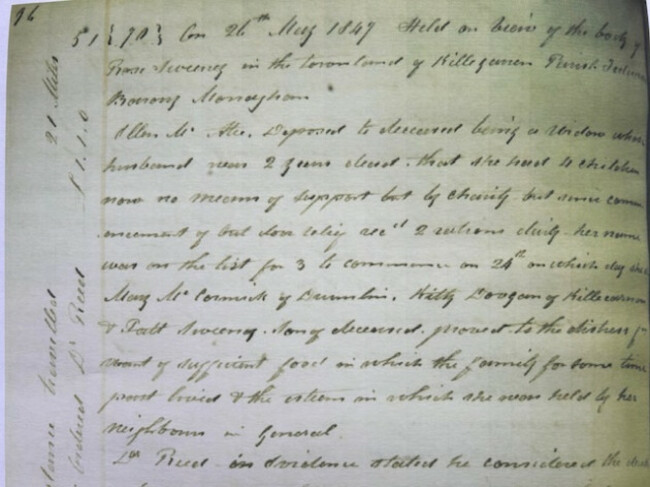 96
51 {70} On 26th May 1847 Held on view of the body of
Rose Sweeny in the townland of Killegarren Parish
Barony Monaghan
Ellen Mc Deposed to deceased being a Widow whose
husband was 2 years dead. that she had 4 children
now no means of support but by charity but since comm
encement of out door relief recd 2 rations daily her name
was on the list for 3 to commence on 24th on which day she
Mary McCormick of Drumlin, Kitty Doogan of
& Patt Sweeny. Son of deceased. proved to the distress for
want of sufficient food in which the family for some time
past lived & the esteem in which she was held by her
neighbours in General.
Dr Reed in Evidence stated he considered the
21 Miles
£1.1.0
Distance travelled
ordered Dr Reed